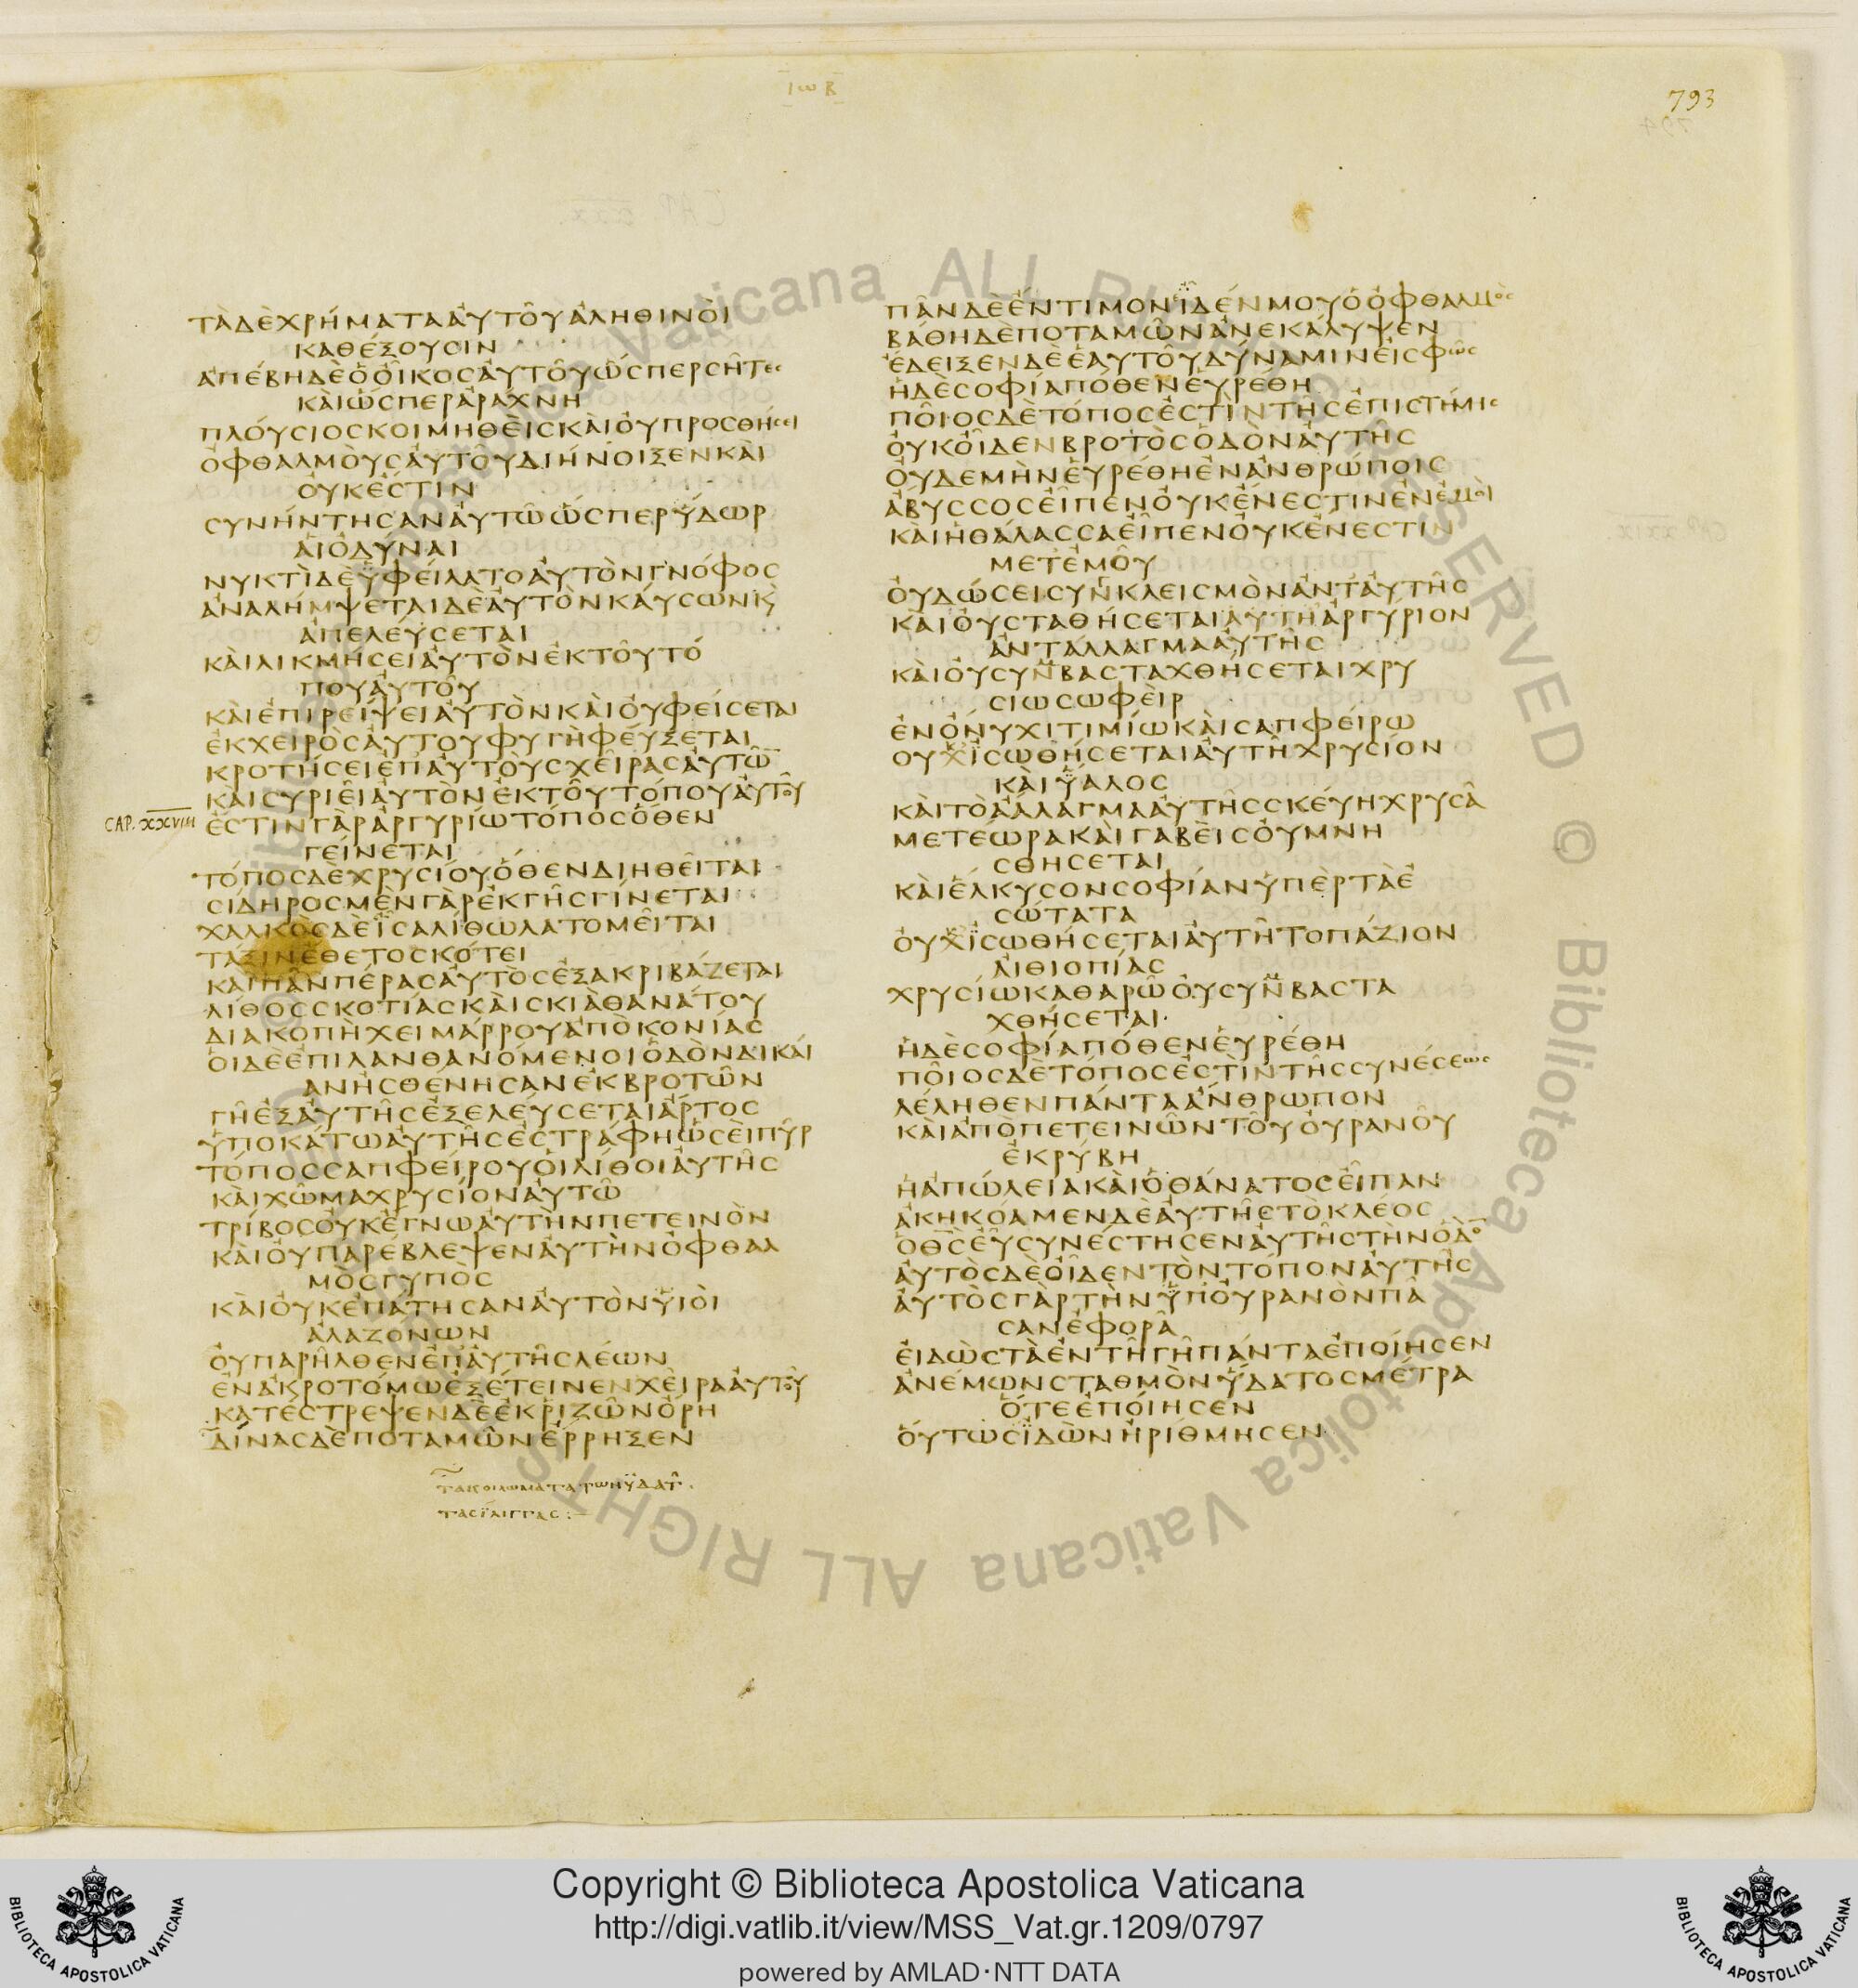 ΙΩΒ
793
ΤᾺΔῈΧΡΉΜΑΤΑΑὐΤΟῦΑΛΗΘΙΝΟῚ
ΚΑΘΈΞΟΥΣΙΝ
ἈΠΈΒΗΔΕὉΟἾΚΟΣΑὐΤΟῦὭΣΠΕΡΣῆΤΕΣ
ΚΑῚὭΣΠΕΡἈΡΆΧΝΗ
ΠΛΟΎΣΙΟΣΚΟΙΜΗΘΕῚΣΚΑῚΟὐΠΡΟΣΘΉΣΕΙ
ὈΦΘΑΛΜΟῪΣΑὐΤΟῦΔΙΉΝΟΙΞΕΝΚΑῚ
ΟὐΚἜΣΤΙΝ
ΣΥΝΉΝΤΗΣΑΝΑὐΤῶὭΣΠΕΡὕΔΩΡ
ΑἹὈΔΎΝΑΙ
ΝΥΚΤῚΔῈὙΦΕΊΛΑΤΟΑὐΤῸΝΓΝΌΦΟΣ
ἈΝΑΛΉΜΨΕΤΑΙΔῈΑὐΤῸΝΚΑΎΣΩΝΚ̀
ἈΠΕΛΕΎΣΕΤΑΙ
ΚΑῚΛΙΚΜΉΣΕΙΑὐΤῸΝἘΚΤΟῦΤΌ
ΠΟΥΑὐΤΟῦ
ΚΑῚἘΠΙΡΕΊΨΕΙΑὐΤῸΝΚΑῚΟὐΦΕΊΣΕΤΑΙ
ἘΚΧΕΙΡῸΣΑὐΤΟΥΦΥΓῊΦΕΎΞΕΤΑΙ
ΚΡΟΤΉΣΕΙἘΠΑὐΤΟῪΣΧΕῖΡΑΣΑὐΤῶ̅
ΚΑῚΣΥΡΙΕῖΑὐΤῸΝἘΚΤΟῦΤΌΠΟΥΑὐΤΟῦ
CAP. XXVIII ἜΣΤΙΝΓᾺΡἈΡΓΥΡΊΩΤΌΠΟΣὍΘΕΝ
ΓΕΊΝΕΤΑΙ
ΤΌΠΟΣΔΕΧΡΥΣΊΟΥὍΘΕΝΔΙΗΘΕῖΤΑΙ
ΣΊΔΗΡΟΣΜῈΝΓᾺΡἘΚΓῆΣΓΊΝΕΤΑΙ
ΧΑΛΚῸΣΔῈΙΣΑΛΊΘΩΛΑΤΟΜΕῖΤΑΙ
ΤΆΞΙΝἜΘΕΤΟΣΚΌΤΕΙ
ΚΑῚΠᾶΝΠΈΡΑΣΑὐΤῸΣἘΞΑΚΡΙΒΆΖΕΤΑΙ
ΛΊΘΟΣΣΚΟΤΊΑΣΚΑῚΣΚΙᾺΘΑΝΆΤΟΥ
ΔΙΑΚΟΠῊΧΕΙΜΆΡΡΟΥἈΠῸΚΟΝΊΑΣ
ΟἹΔῈἘΠΙΛΑΝΘΑΝΌΜΕΝΟΙὉΔῸΝΔΙΚΑΊ
ΑΝΗΣΘΈΝΗΣΑΝἘΚΒΡΟΤῶΝ
ΓῆἘΞΑὐΤῆΣἘΞΕΛΕΎΣΕΤΑΙἌΡΤΟΣ
ὙΠΟΚΆΤΩΑὐΤῆΣἘΣΤΡΆΦΗὩΣΕῚΠῦΡ
ΤΌΠΟΣΣΑΠΦΕΊΡΟΥΟἹΛΊΘΟΙΑὐΤῆΣ
ΚΑῚΧῶΜΑΧΡΥΣΊΟΝΑὐΤῶ
ΤΡΊΒΟΣΟὐΚἜΓΝΩΑὐΤῊΝΠΕΤΕΙΝῸΝ
ΚΑῚΟὐΠΑΡΈΒΛΕΨΕΝΑὐΤῊΝὈΦΘΑΛ
ΜῸΣΓΥΠῸΣ
ΚΑῚΟὐΚἘΠΆΤΗΣΑΝΑὐΤῸΝΥἹΟῚ
ἈΛΑΖΌΝΩΝ
ΟὐΠΑΡῆΛΘΕΝἘΠΑὐΤῆΣΛΈΩΝ
ἘΝἈΚΡΟΤΌΜΩἘΞΈΤΕΙΝΕΝΧΕῖΡΑΑὐΤΟῦ
ΚΑΤΈΣΤΡΕΨΕΝΔῈἘΚΡΙΖῶΝὌΡΗ
ΔΊΝΑΣΔῈΠΟΤΑΜῶΝἜΡΡΗΞΕΝ
ΤΑΚΟΙΛΩΜΑΤΑΤΩΝΥΔΑΤ
ΠᾶΝΔῈἜΝΤΙΜΟΝΙΔΈΝΜΟΥὉὈΦΘΑΛΜῸΣ
ΒΆΘΗΔῈΠΟΤΑΜῶΝἈΝΕΚΆΛΥΨΕΝ
ἜΔΕΙΞΕΝΔῈἙΑΥΤΟῦΔΎΝΑΜΙΝΕἸΣΦῶΣ
ἩΔῈΣΟΦΊΑΠΌΘΕΝΕὑΡΈΘΗ
ΠΟῖΟΣΔῈΤΌΠΟΣἘΣΤῚΝΤῆΣἘΠΙΣΤΉΜΗΣ
ΟὐΚΟἾΔΕΝΒΡΟΤῸΣὉΔῸΝΑὐΤῆΣ
ΟὐΔΕΜῊΝΕὑΡΈΘΗἘΝἈΝΘΡΏΠΟΙΣ
ἌΒΥΣΣΟΣΕἾΠΕΝΟὐΚἜΝΕΣΤΙΝἘΝἘΜΟῚ
ΚΑῚἩΘΆΛΑΣΣΑΕἾΠΕΝΟὐΚἜΝΕΣΤΙΝ
ΜΕΤἘΜΟῦ
ΟὐΔΏΣΕΙΣΥΝΚΛΕΙΣΜῸΝἈΝΤΑὐΤῆΣ
ΚΑῚΟὐΣΤΑΘΉΣΕΤΑΙΑΥΤΗἈΡΓΎΡΙΟΝ
ἈΝΤΆΛΛΑΓΜΑΑὐΤῆΣ
ΚΑῚΟὐΣΥΝΒΑΣΤΑΧΘΉΣΕΤΑΙΧΡΥ
ΣΊΩΣΩΦῈΙΡ
ἘΝὌΝΥΧΙΤΙΜΊΩΚΑῚΣΑΠΦΕΊΡΩ
ΟΥΧΙΣΩΘΉΣΕΤΑΙΑὐΤῆΧΡΥΣΊΟΝ
ΚΑῚὝΑΛΟΣ
ΚΑῚΤῸἌΛΛΑΓΜΑΑὐΤῆΣΣΚΕΎΗΧΡΥΣᾶ
ΜΕΤΈΩΡΑΚΑῚΓΑΒῈΙΣΟὐΜΝΗ
ΣΘΗΣΕΤΑΙ
ΚΑῚἝΛΚΥΣΟΝΣΟΦΊΑΝὙΠῈΡΤᾺἘ
ΣΏΤΑΤΑ
ΟὐΧΙΣΩΘΉΣΕΤΑΙΑὐΤῆΤΟΠΆΖΙΟΝ
ΑἸΘΙΟΠΊΑΣ
ΧΡΥΣΊΩΚΑΘΑΡῶΟὐΣΥΝΒΑΣΤΑ
ΧΘΉΣΕΤΑΙ·
ἩΔῈΣΟΦΊΑΠΌΘΕΝΕὑΡΈΘΗ
ΠΟῖΟΣΔῈΤΌΠΟΣἘΣΤῚΝΤῆΣΣΥΝΈΣΕΩΣ
ΛΈΛΗΘΕΝΠΆΝΤΑἌΝΘΡΩΠΟΝ
ΚΑῚἈΠῸΠΕΤΕΙΝῶΝΤΟῦΟὐΡΑΝΟῦ
ἘΚΡΎΒΗ
ἩἈΠΏΛΕΙΑΚΑῚὉΘΆΝΑΤΟΣΕἾΠΑΝ
ἈΚΗΚΌΑΜΕΝΔῈΑὐΤῆΣΤῸΚΛΈΟΣ
ὉΘ̅Σ̅ΕὖΣΥΝΈΣΤΗΣΕΝΑὐΤῆΣΤῊΝὉΔῸ̅
ΑὐΤῸΣΔῈΟἾΔΕΝΤῸΝΤΌΠΟΝΑὐΤῆΣ
ΑὐΤῸΣΓᾺΡΤῊΝὙΠΟὐΡΑΝῸΝΠᾶ
ΣΑΝἘΦΟΡᾶ
ΕἸΔῺΣΤᾺἘΝΤῆΓῆΠΆΝΤΑἘΠΟΊΗΣΕΝ
ἈΝΈΜΩΝΣΤΑΘΜῸΝὝΔΑΤΟΣΜΈΤΡΑ
ὍΤΕἘΠΟΊΗΣΕΝ
ΟὕΤΩΣΙΔῺΝἨΡΊΘΜΗΣΕΝ
ALL RIGHTS RESERVED © Biblioteca Apostolica Vaticana
Copyright © Biblioteca Apostolica Vaticana
http://digi.vatlib.it/view/MSS_Vat.gr.1209/0797
powered by AMLAD·NTT DATA
BIBLIOTECA APOSTOLICA VATICANA
BIBLIOTECA APOSTOLICA VATICANA